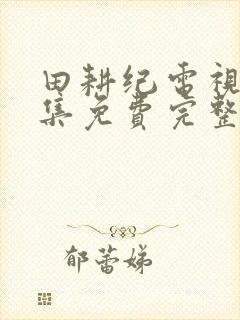 田耕纪电視
集免費完整
郁蕾娣